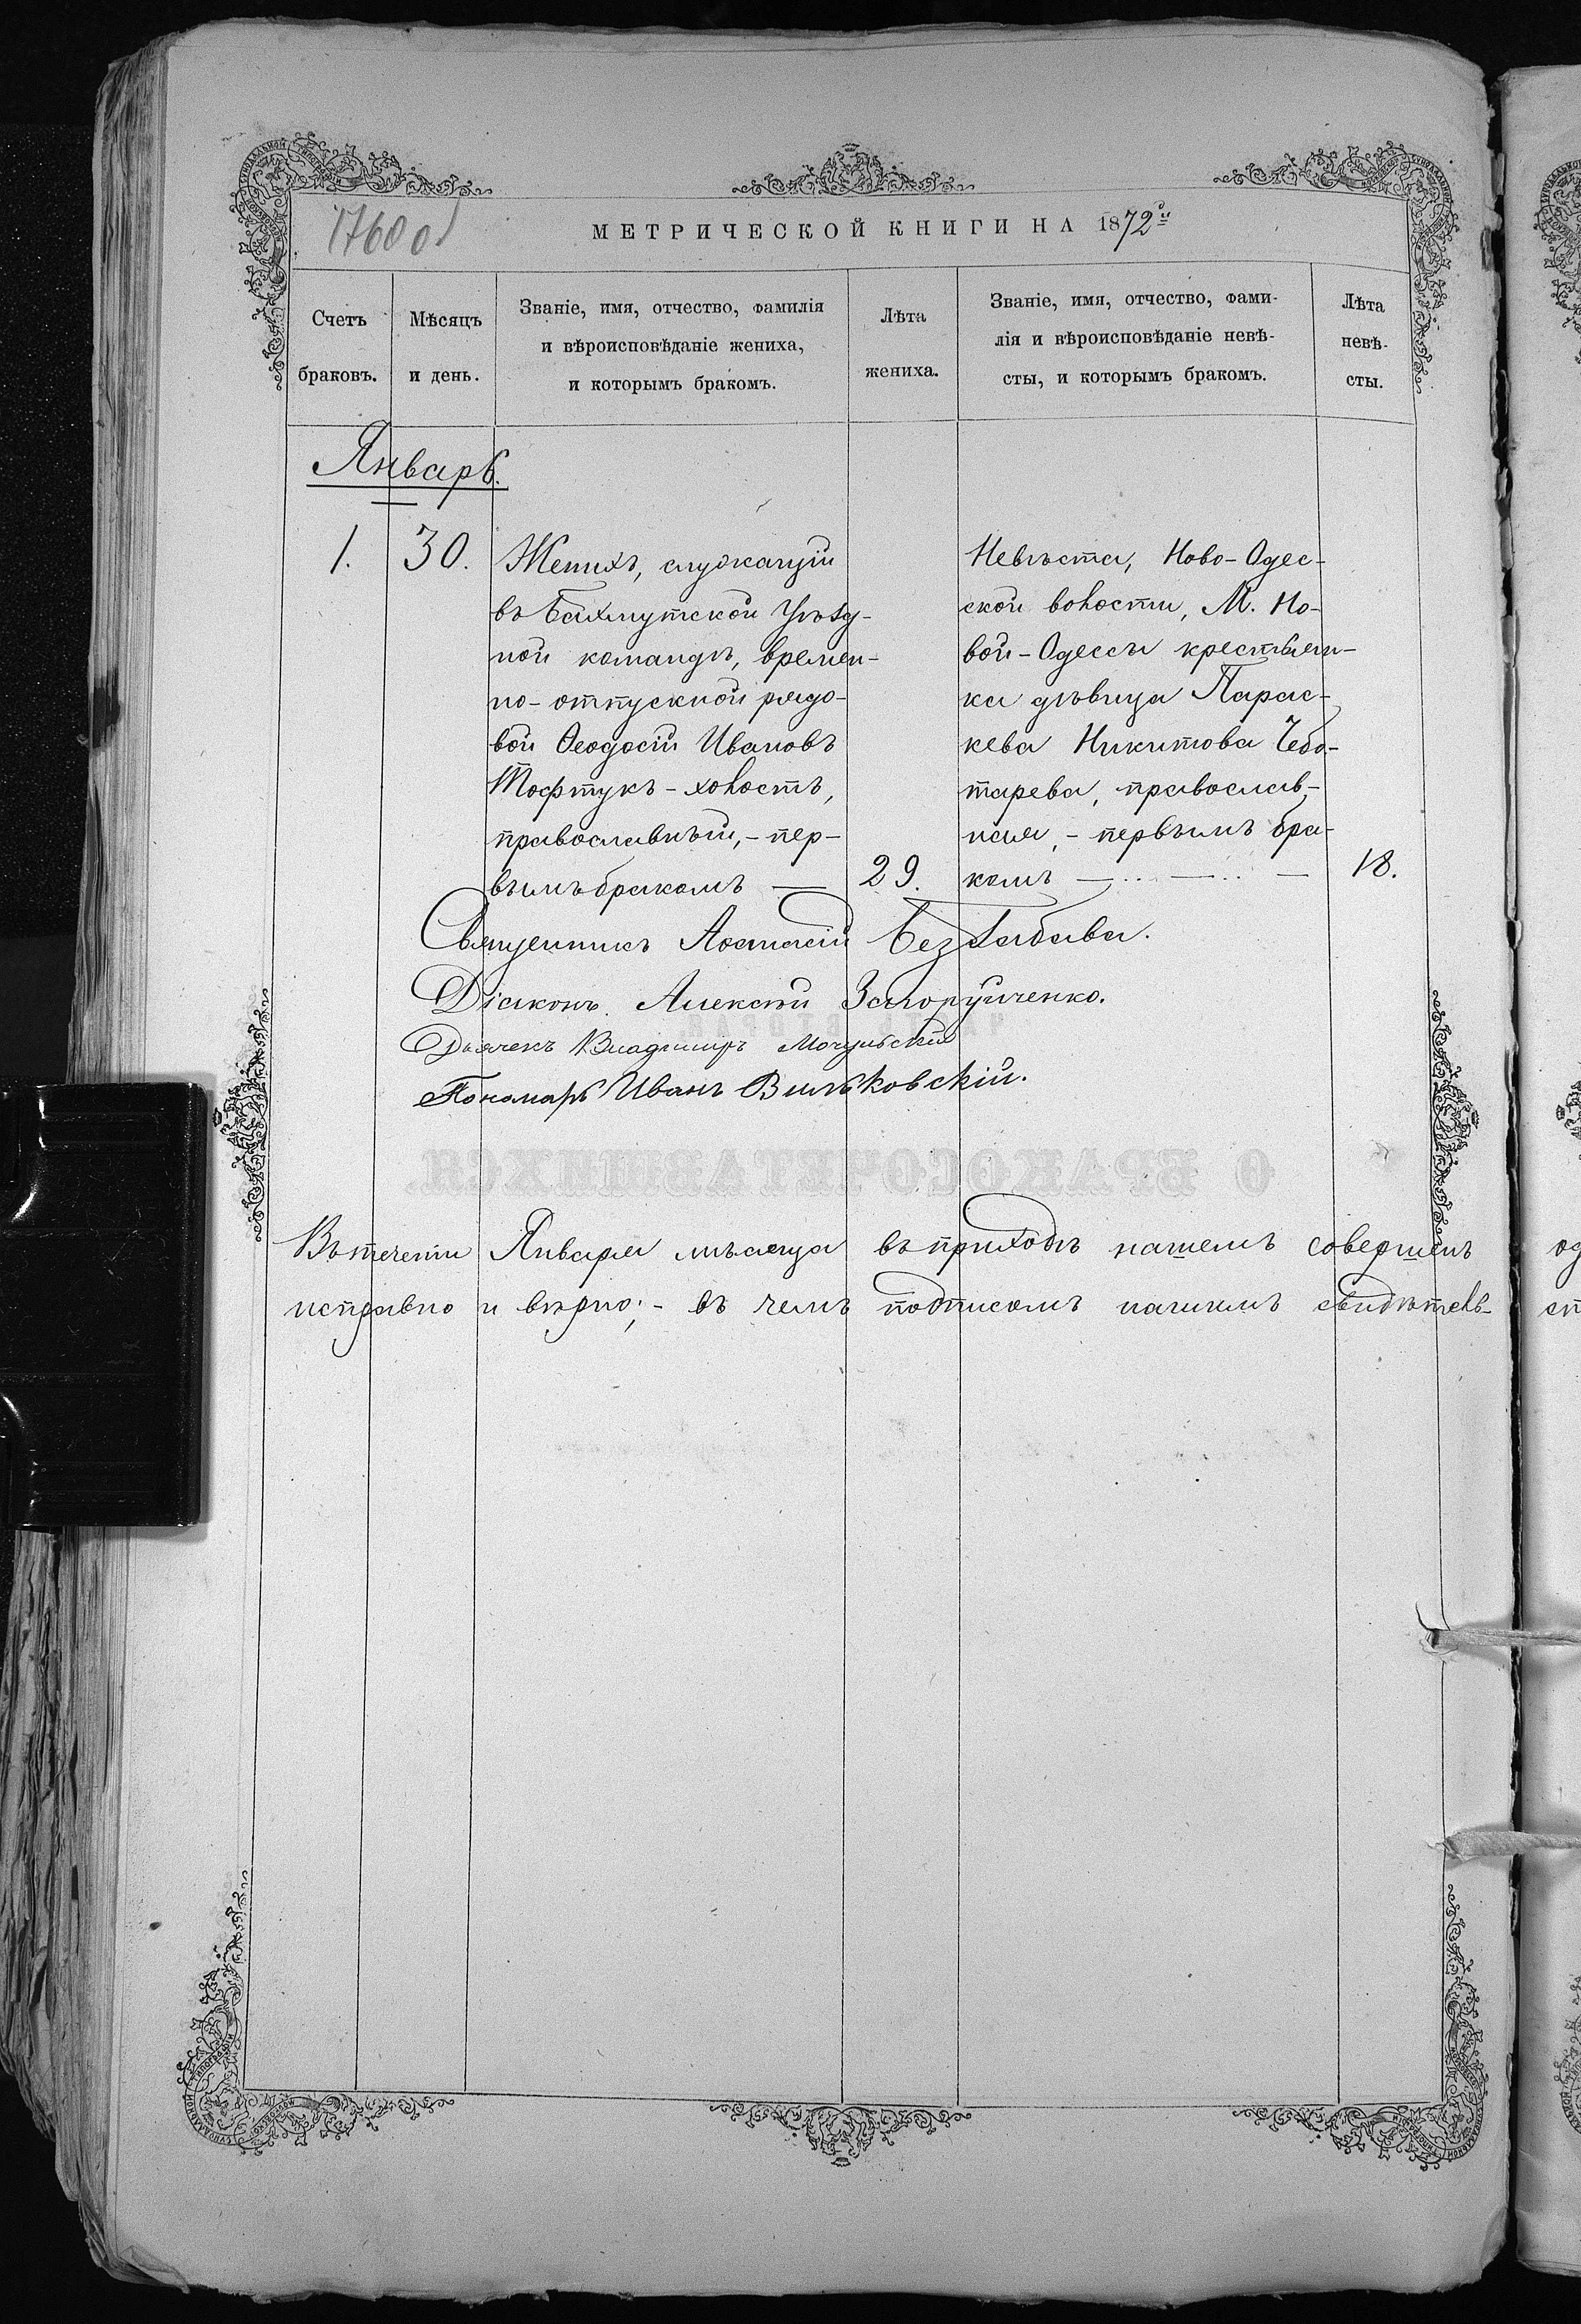 1760 об
МЕТРИЧЕСКОЙ КНИГИ НА 1872й
Счетъ браковъ.
Мѣсяцъ и день.
Званіе, имя, отчество, фамилія
и вѣроисповѣданіе жениха,
и которымъ бракомъ.
Лѣта жениха.
Званіе, имя, отчество, фами-
лія и вѣроисповѣданіе невѣ-
сты, и которымъ бракомъ.
Лѣта невѣ-
сты.
Январь.
1.
30.
Женихъ, служащій
въ Бахмутской Уѣзд-
ной командѣ, времен-
но-отпускной рядо-
вой Ѳеодосій Ивановъ
Тофтукъ - холостъ,
православный, - пер-
вымъ бракомъ —
29.
Невѣста, Ново-Одес-
ской волости, М. Но-
вой-Одессы крестьян-
ка дѣвица Парас-
кева Никитова Чебо-
тарева, православ-
ная, - первымъ бра-
комъ —
18.
Священникъ Аѳанасій Беззабава.
Діаконъ Алексѣй
Дьячекъ Владиміръ
Пономарь Иванъ Вильковскій.
Въ теченіи Января мѣсяца въ приходѣ нашемъ совершенъ
исправно и вѣрно; - въ чемъ подписомъ нашимъ свидѣтель-